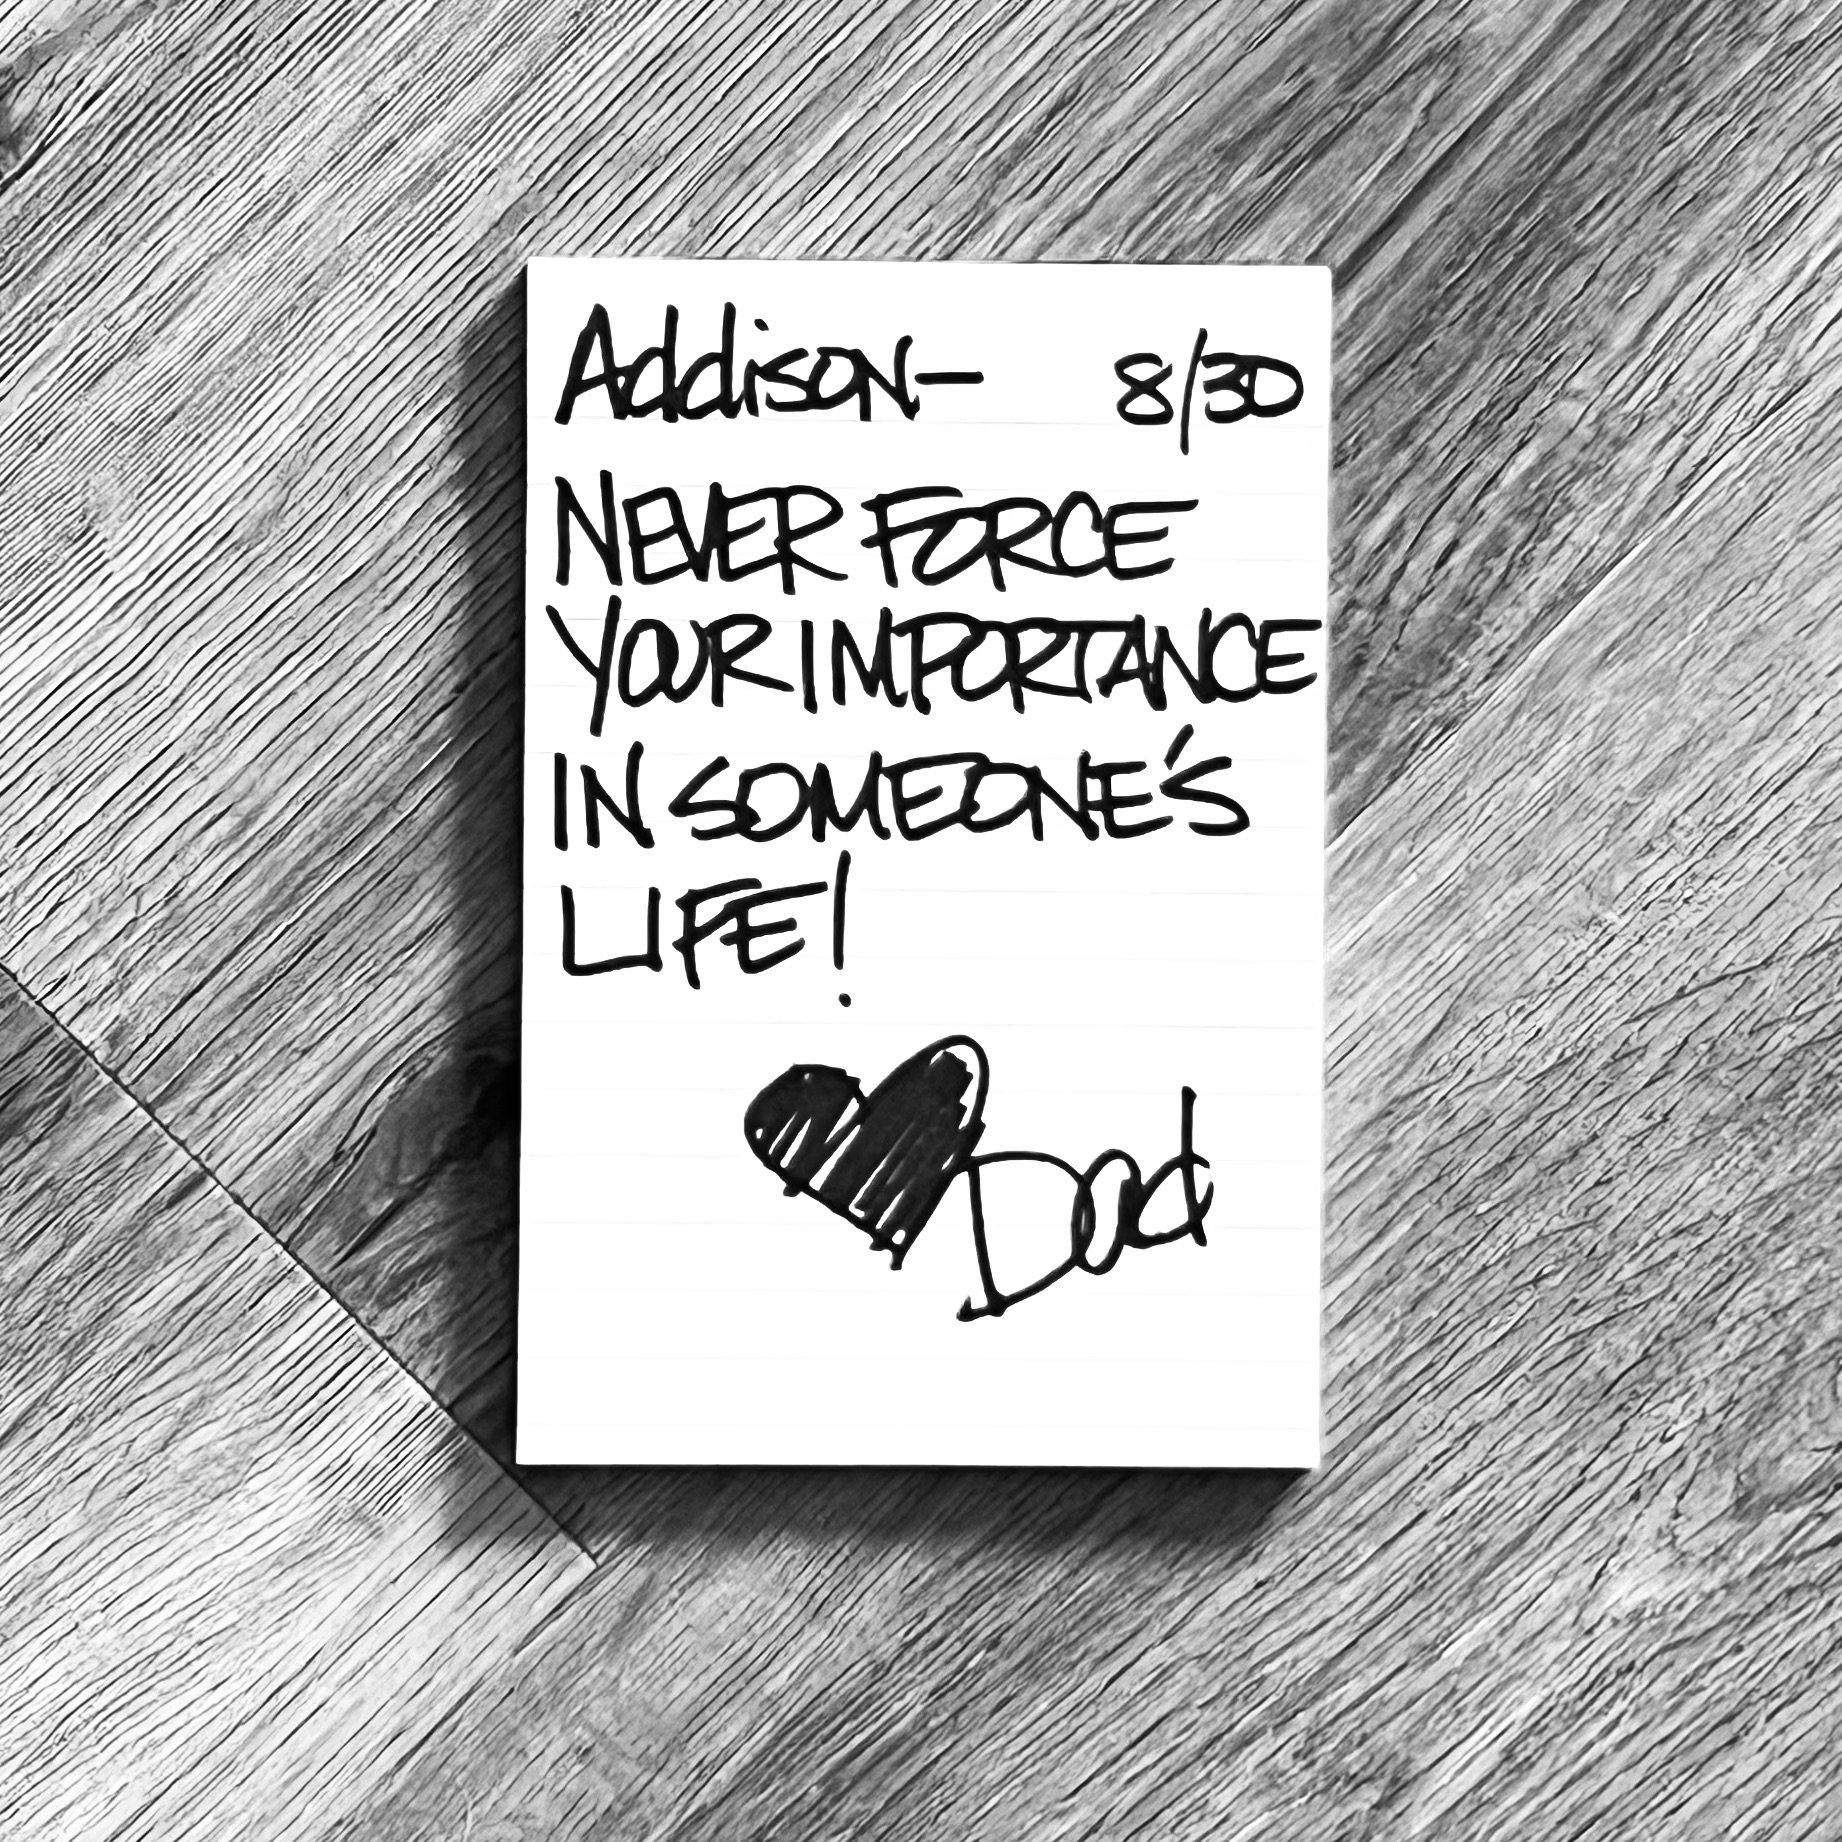 Addison— 8/30
NEVER FORCE
YOUR IMPORTANCE
IN SOMEONE'S
LIFE!
Dad